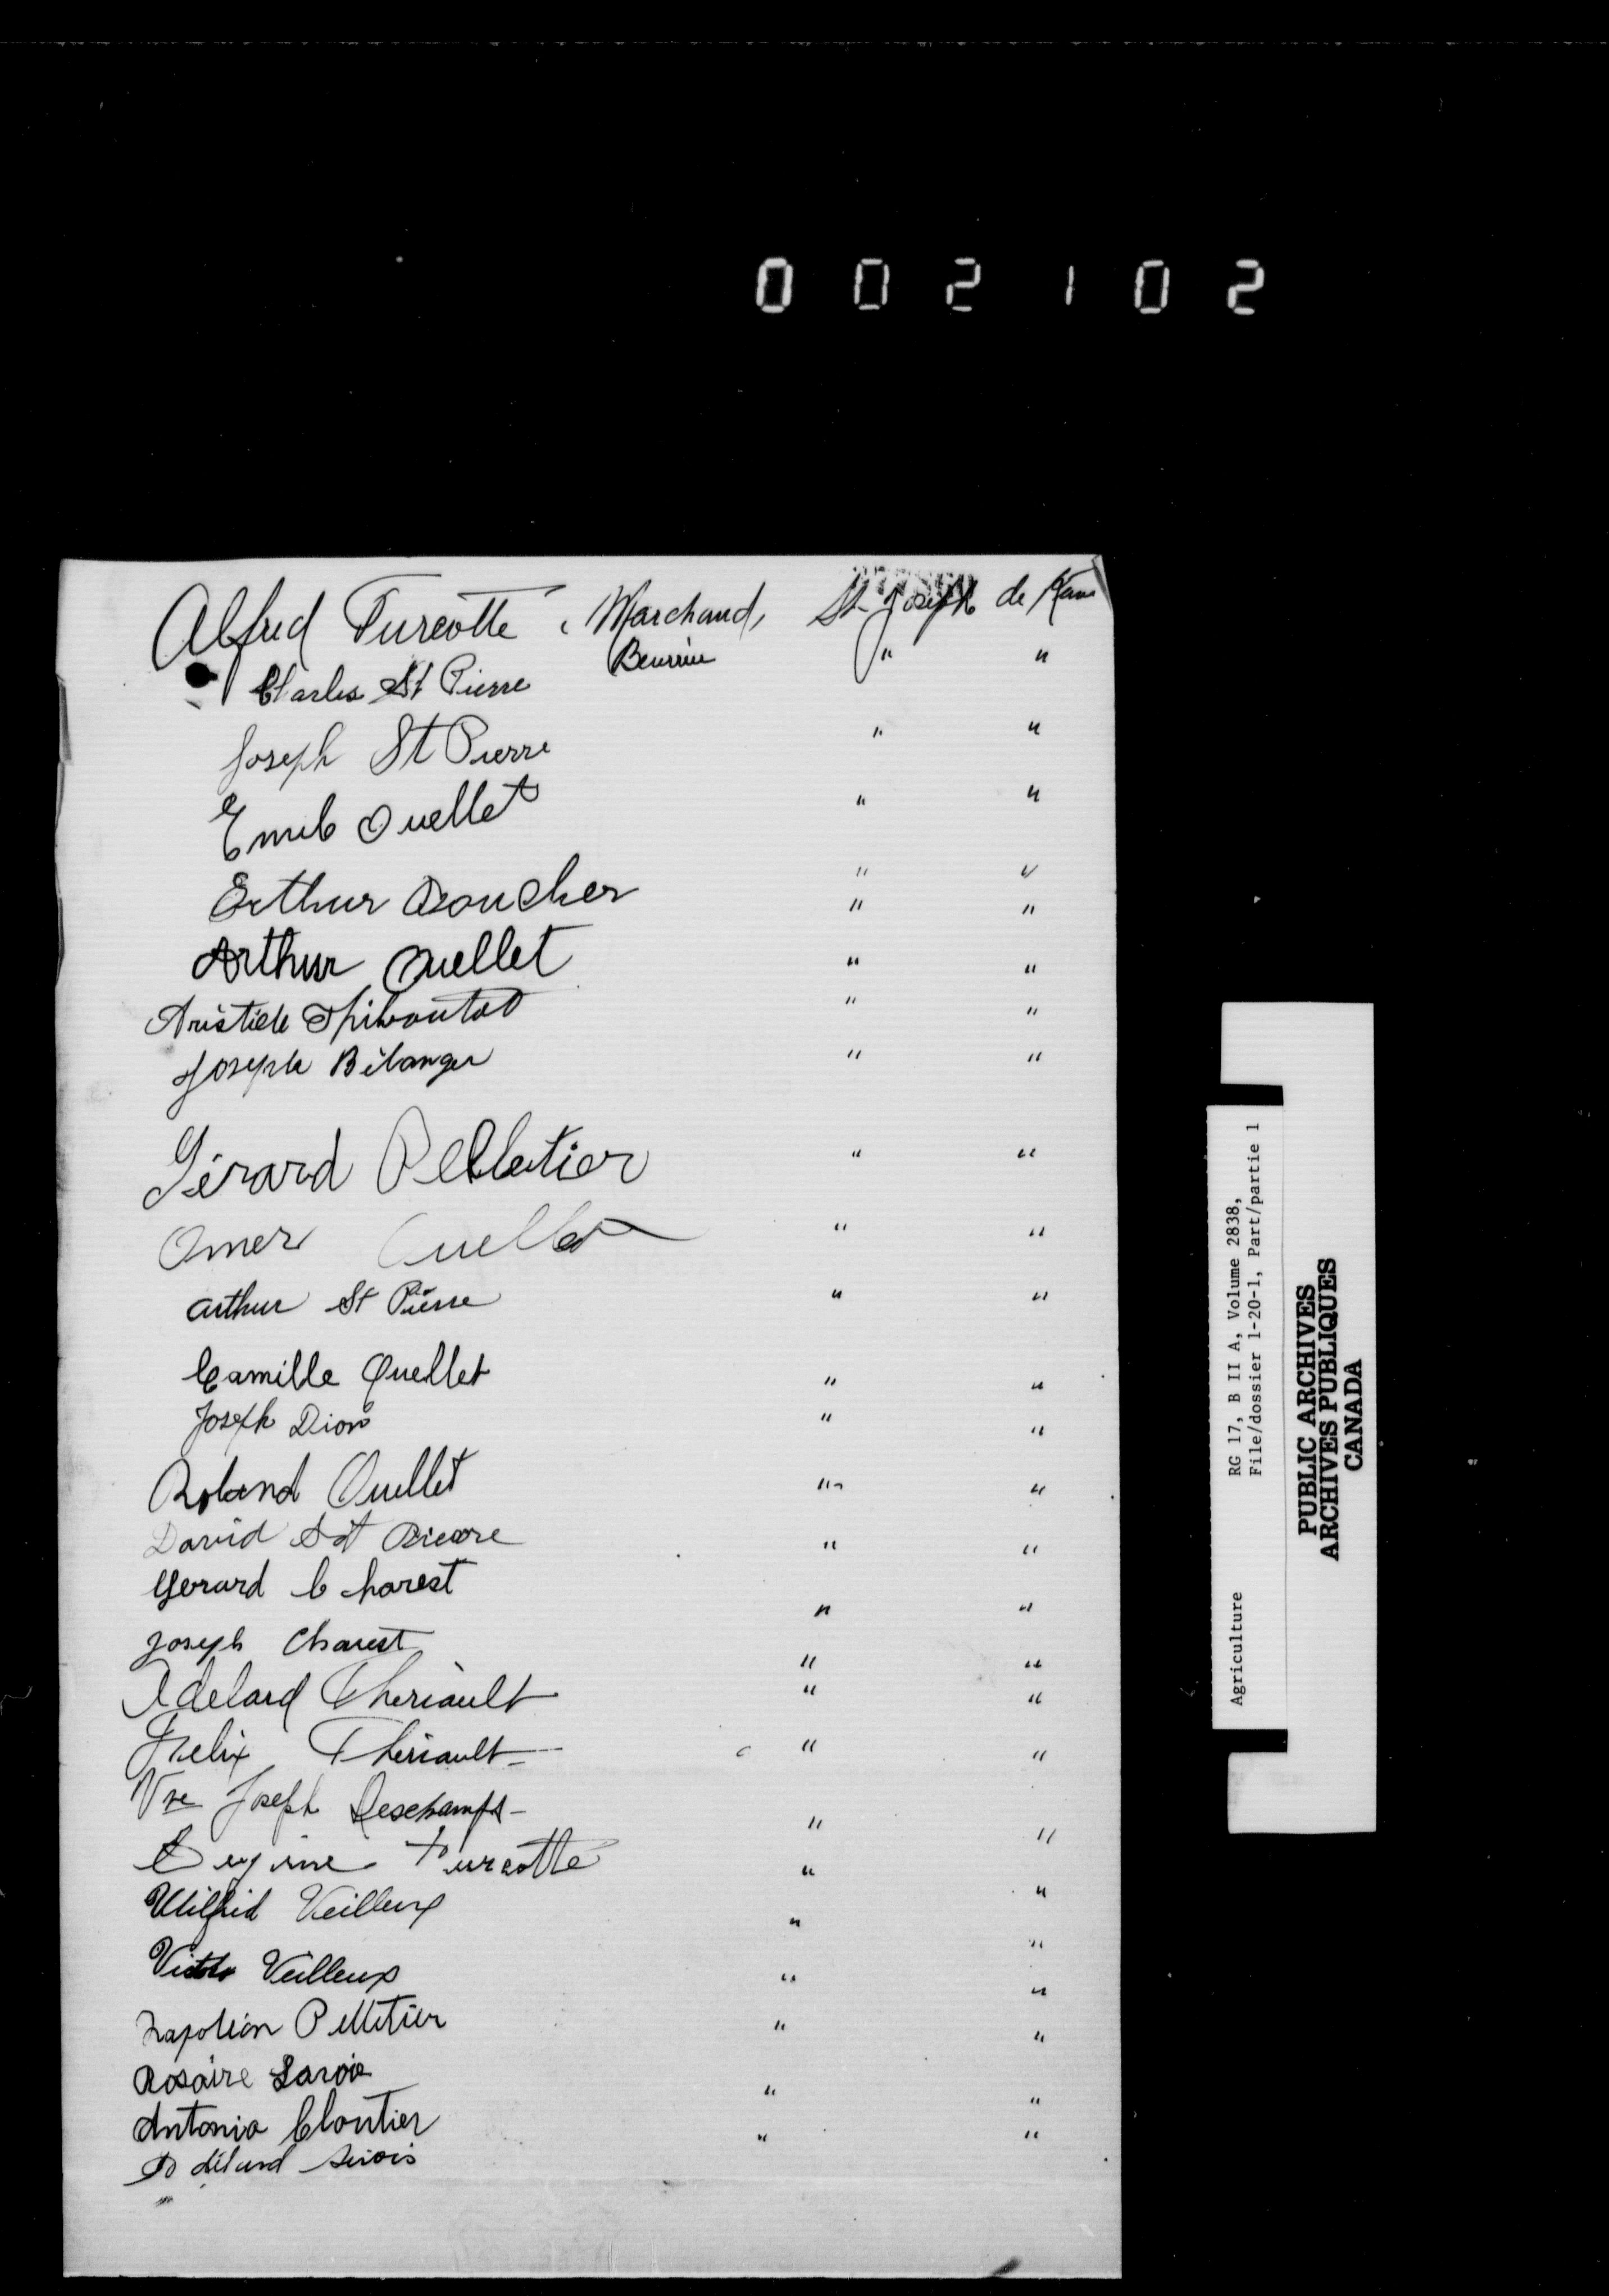 002102
Alfred Turcotte, Marchand, St-Joseph de Kam
Charles St Pierre Beurrier " "
Joseph St Pierre " "
Emile Ouellet " "
Arthur Boucher " "
Arthur Ouellet " "
Aristide Thiboutot " "
Joseph Bélanger " "
Gérard Pelletier " "
Omer Ouellet " "
Arthur St Pierre " "
Camille Ouellet " "
Joseph Dion " "
Roland Ouellet " "
David St Pierre " "
Gerard Charest " "
Joseph Charest " "
Adelard Theriault " "
Felix Theriault " "
Vve Joseph Deschamps " "
Eugène Turcotte " "
Wilfrid Veilleux " "
Victor Veilleux " "
Napoléon Pelletier " "
Rosaire Lavoie " "
Antonio Cloutier " "
Adélard Sirois
Agriculture RG 17, B II A, Volume 2838,
File/dossier 1-20-1, Part/partie 1
PUBLIC ARCHIVES
ARCHIVES PUBLIQUES
CANADA